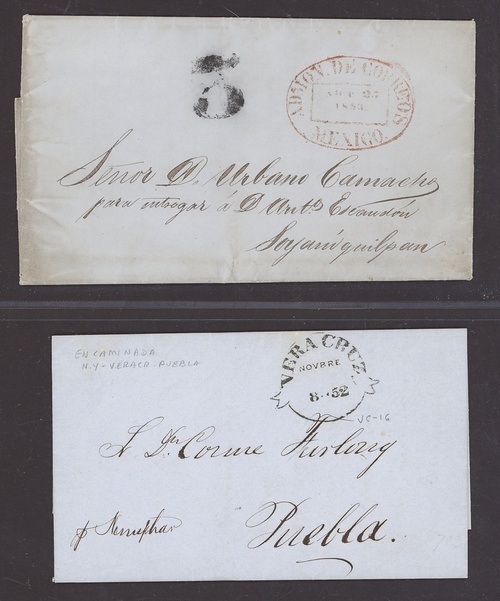 3
ADMON. DE CORREOS
1853.
MEXICO.
Señor D. Urbano Camacho
para entregar á D Anto. Escandón
Soyaniquilpan
EN CAMINADA
N.Y - VERACR - PUEBLA
VERA CRUZ
NOVBRE
8. 52
VC-16
Furlong
Puebla.